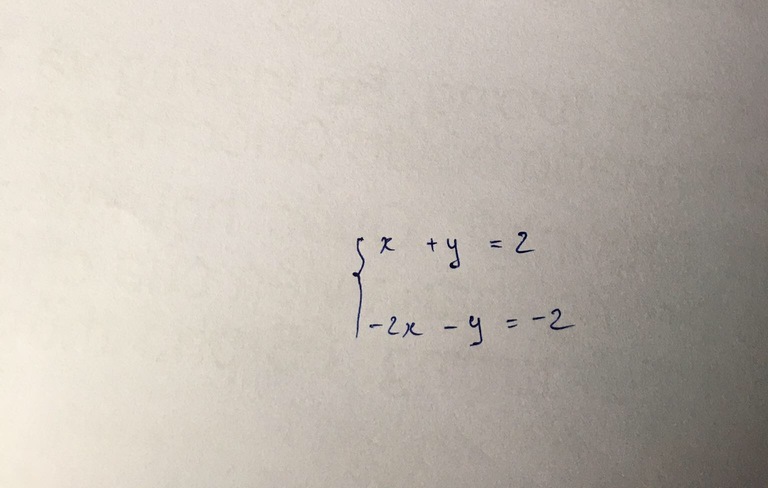 x + y = 2
-2x - y = -2